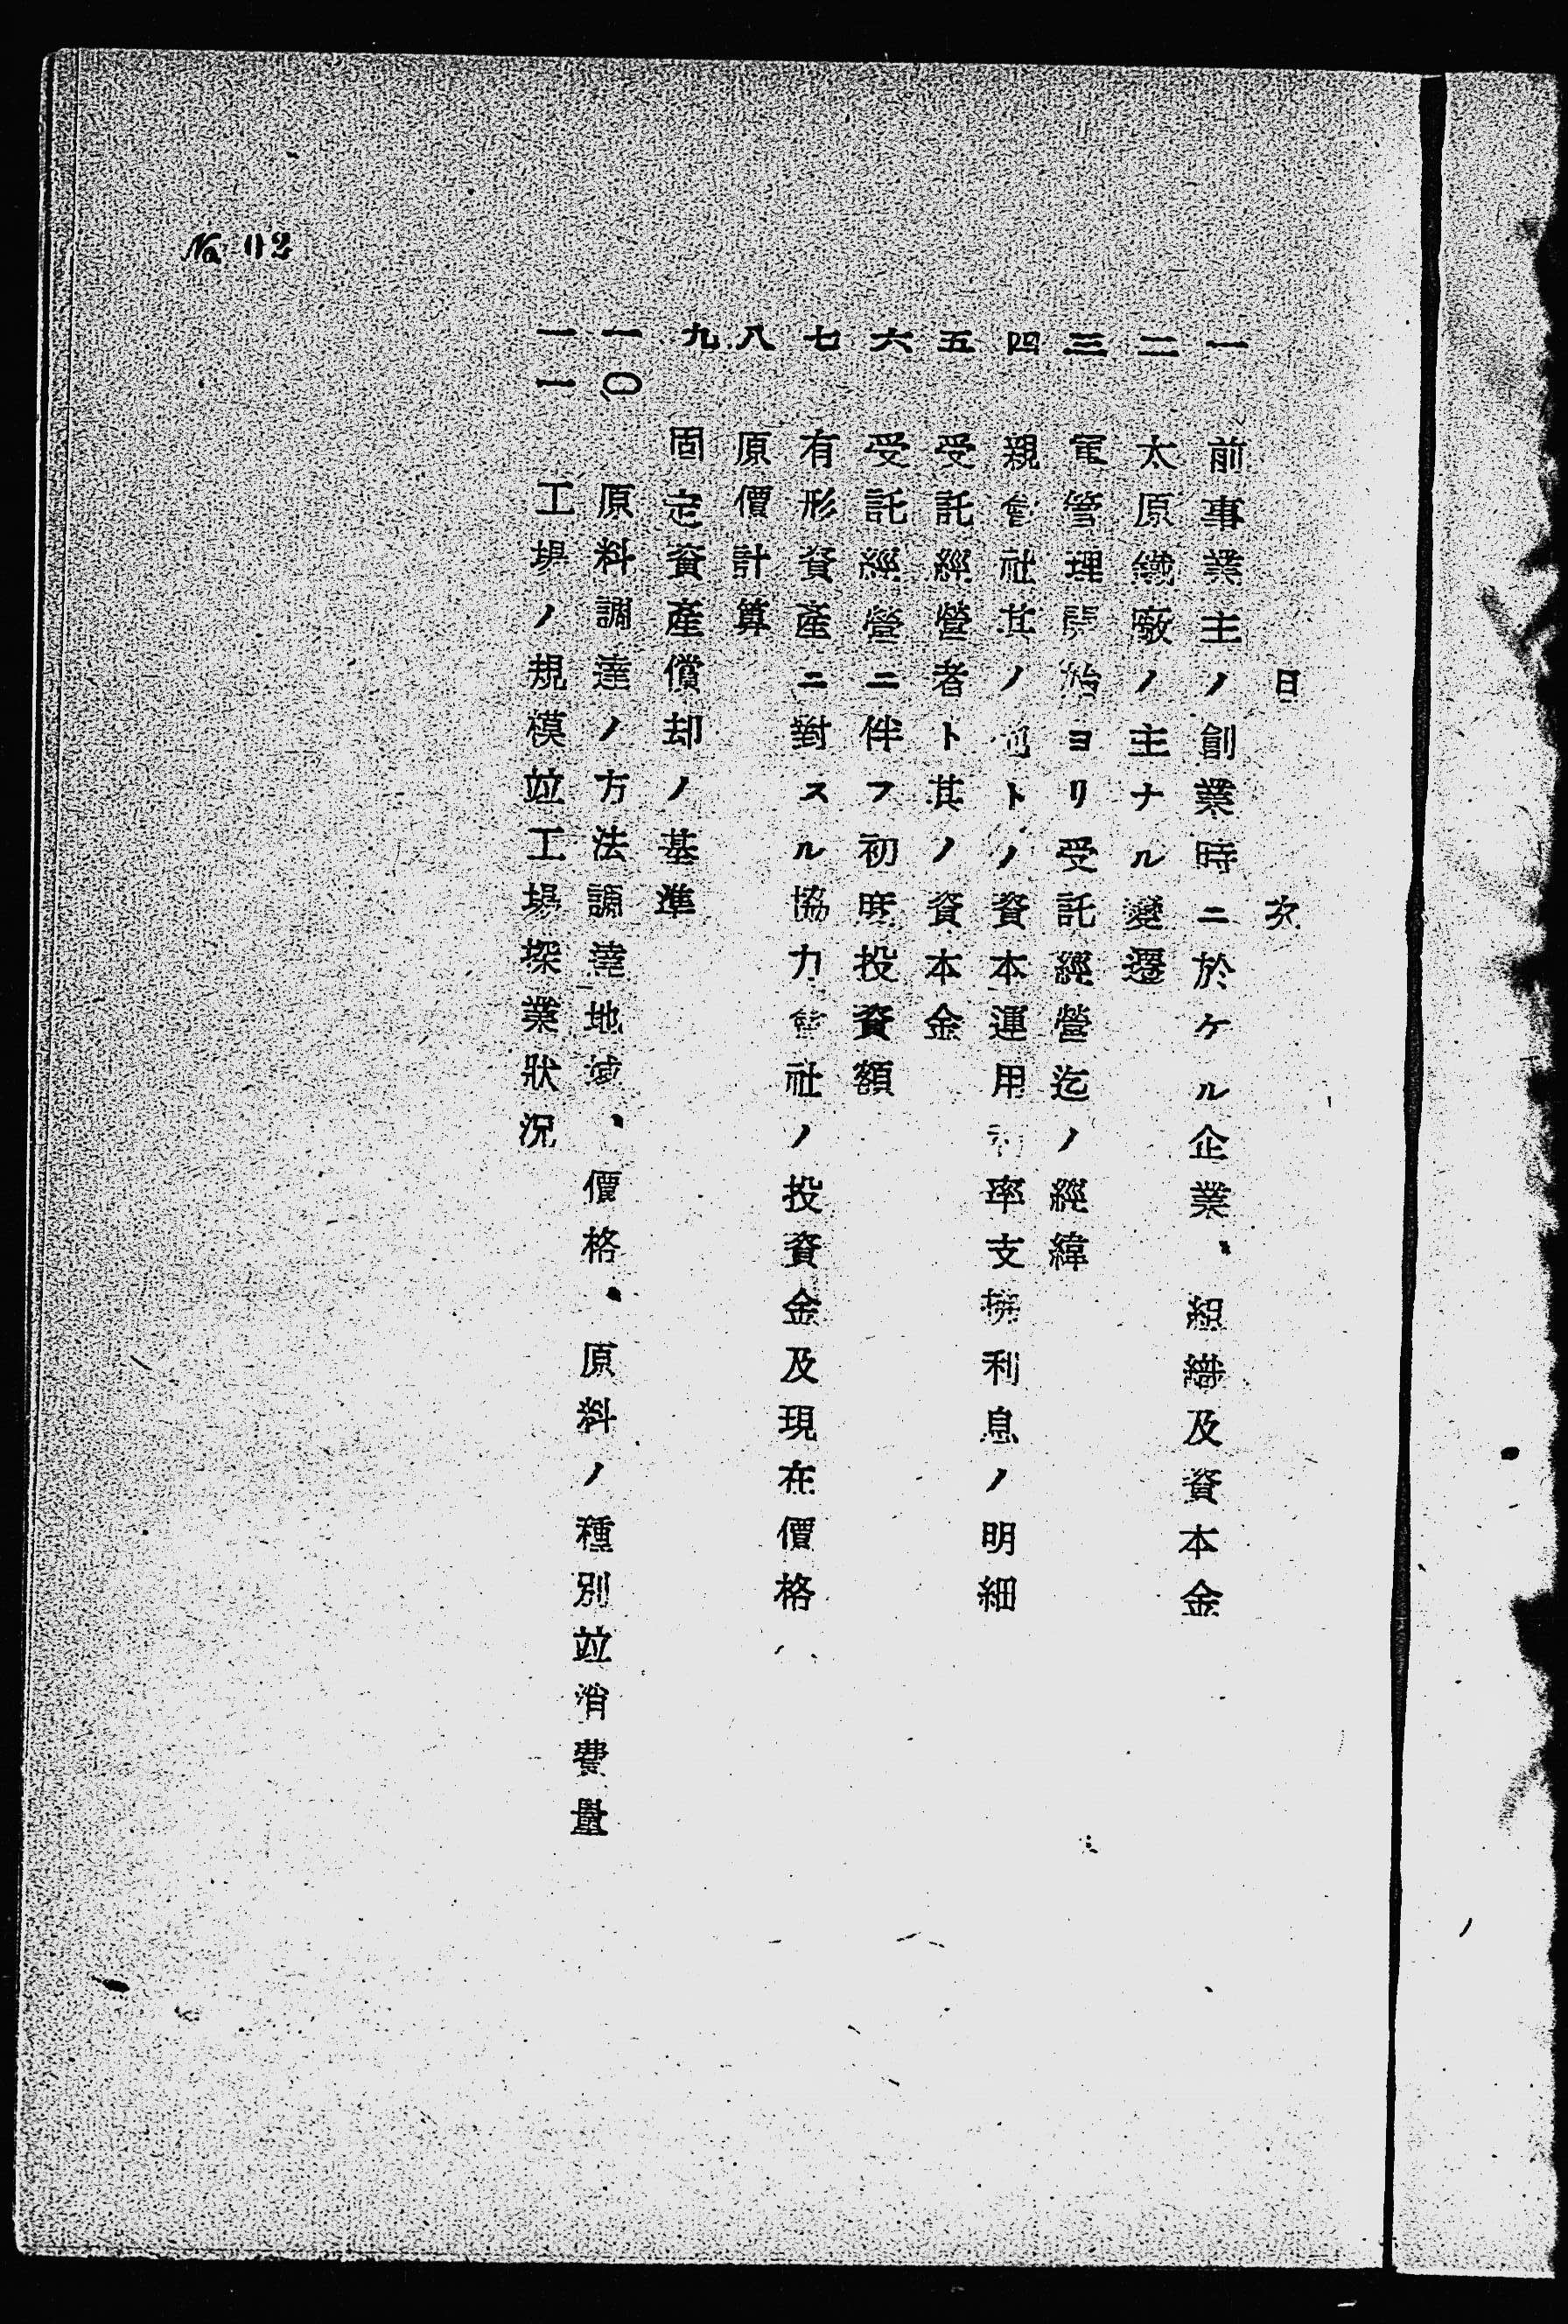 目次
一 前事業主ノ創業時ニ於ケル企業、組織及資本金
二 太原鐵廠ノ主ナル變遷
三 軍管理開始ヨリ受託經營迄ノ經緯
四 親會社其ノ他トノ資本運用利率支拂利息ノ明細
五 受託經營者ト其ノ資本金
六 受託經營ニ伴フ初度投資額
七 有形資產ニ對スル協力會社ノ投資金及現在價格
八 原價計算
九 固定資產償却ノ基準
一〇 原料調達ノ方法調達地域、價格、原料ノ種別竝消費量
一一 工場ノ規模竝工場操業狀況
No. 02